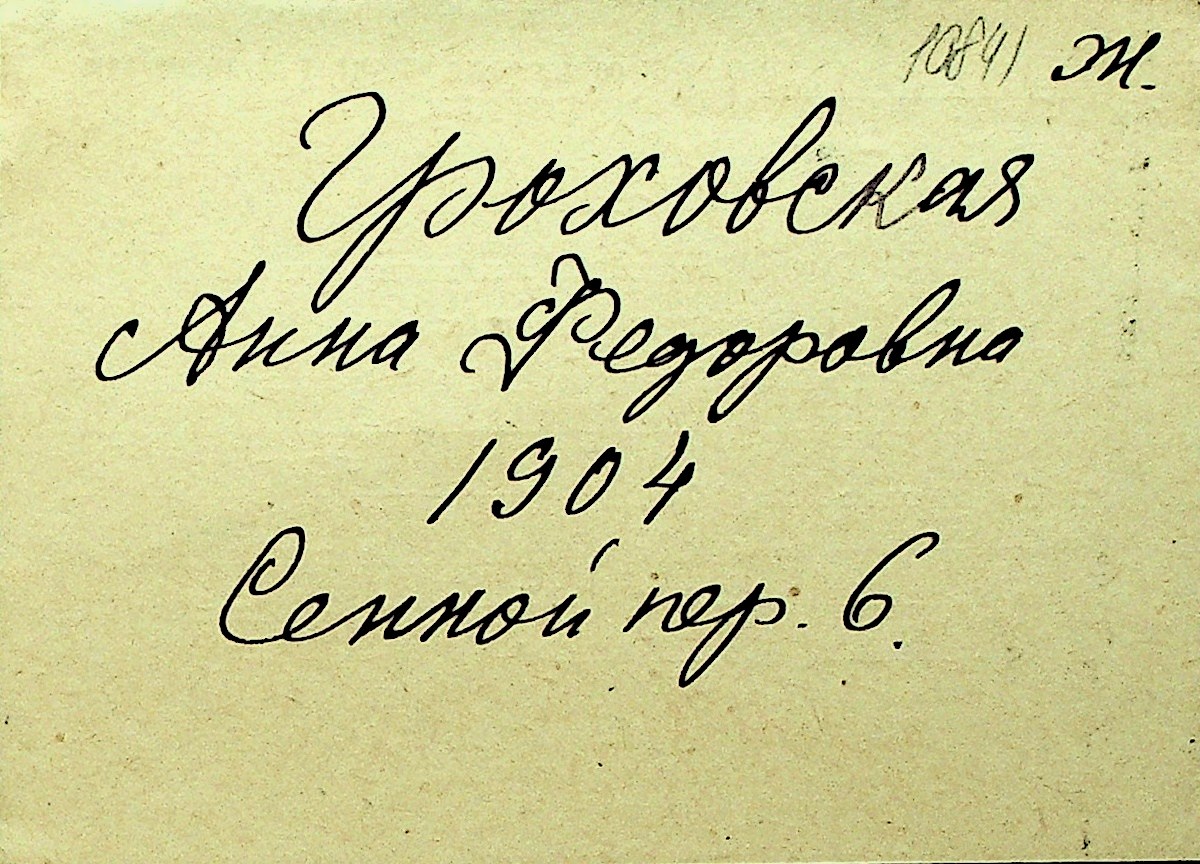 10841 ж.
Гроховская
Анна Федоровна
1904
Сенной пер. 6.